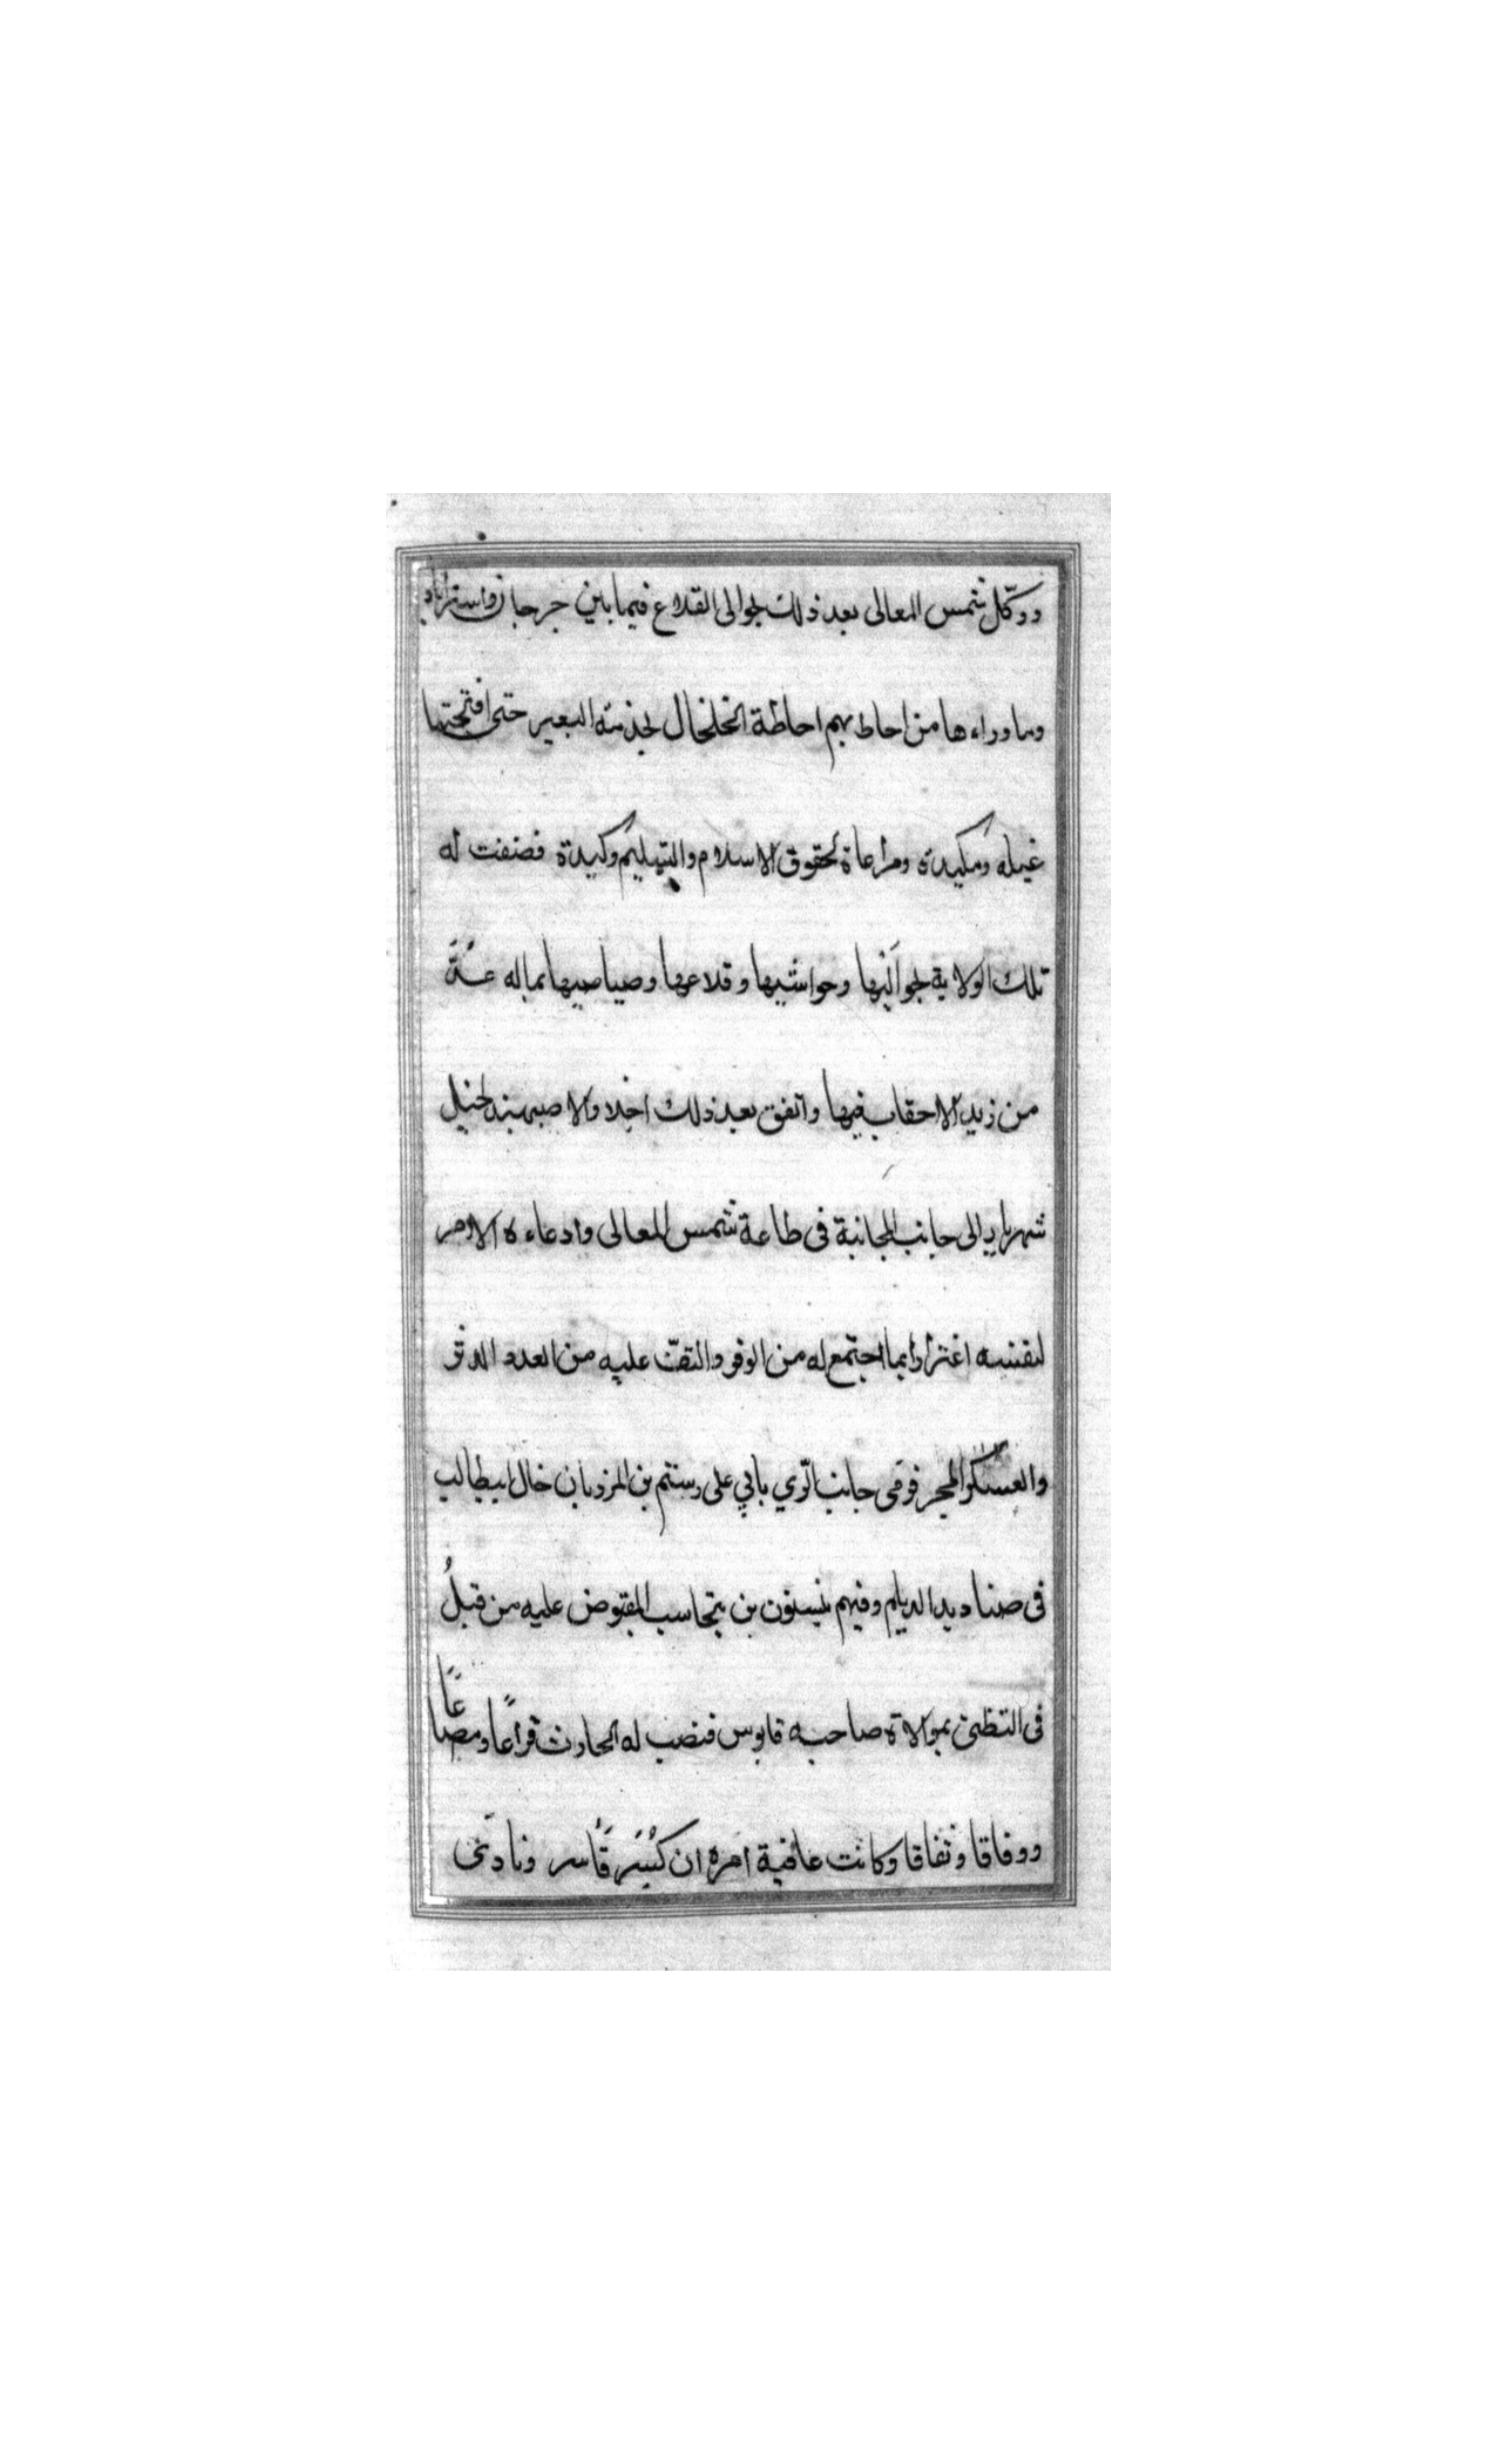 ووكّل شمس المعالى بعد ذلك بحوالى القلاع فيما بين جرجان واستراباد
وما وراءها من احاط بهم احاطة الخلخال بخدمة البعير حتى افتتحتها
غيله ومكيدة ومراعاة لحقوق الاسلام والتسليم وكيدة فصنفت له
تلك الولاية بجوانبها وحواشيها وقلاعها وصياصيها بماله عدّة
من زبد الاحقاب فيها واتفق بعد ذلك اخلاد الاصبهبد لجيل
شهريار الى جانب المجانبة فى طاعة شمس المعالى وادعاءه الامر
لنفسه اغترارا بما اجتمع له من الوفر والتفّ عليه من العدد الدثر
والعسكر المجر فرمى جانب الرّي بابي على رستم بن المرزبان خال ابيطالب
فى صناديد الديلم وفيهم بيستون بن بتجاسب المقبوض عليه من قبلُ
فى التظنى بموالاة صاحبه قابوس فنصب له الحارث قراعًا ومصاعًا
ووفاقا ونفاقا وكانت عاقبة امره ان كُسِرَ قَاسر ونادّى